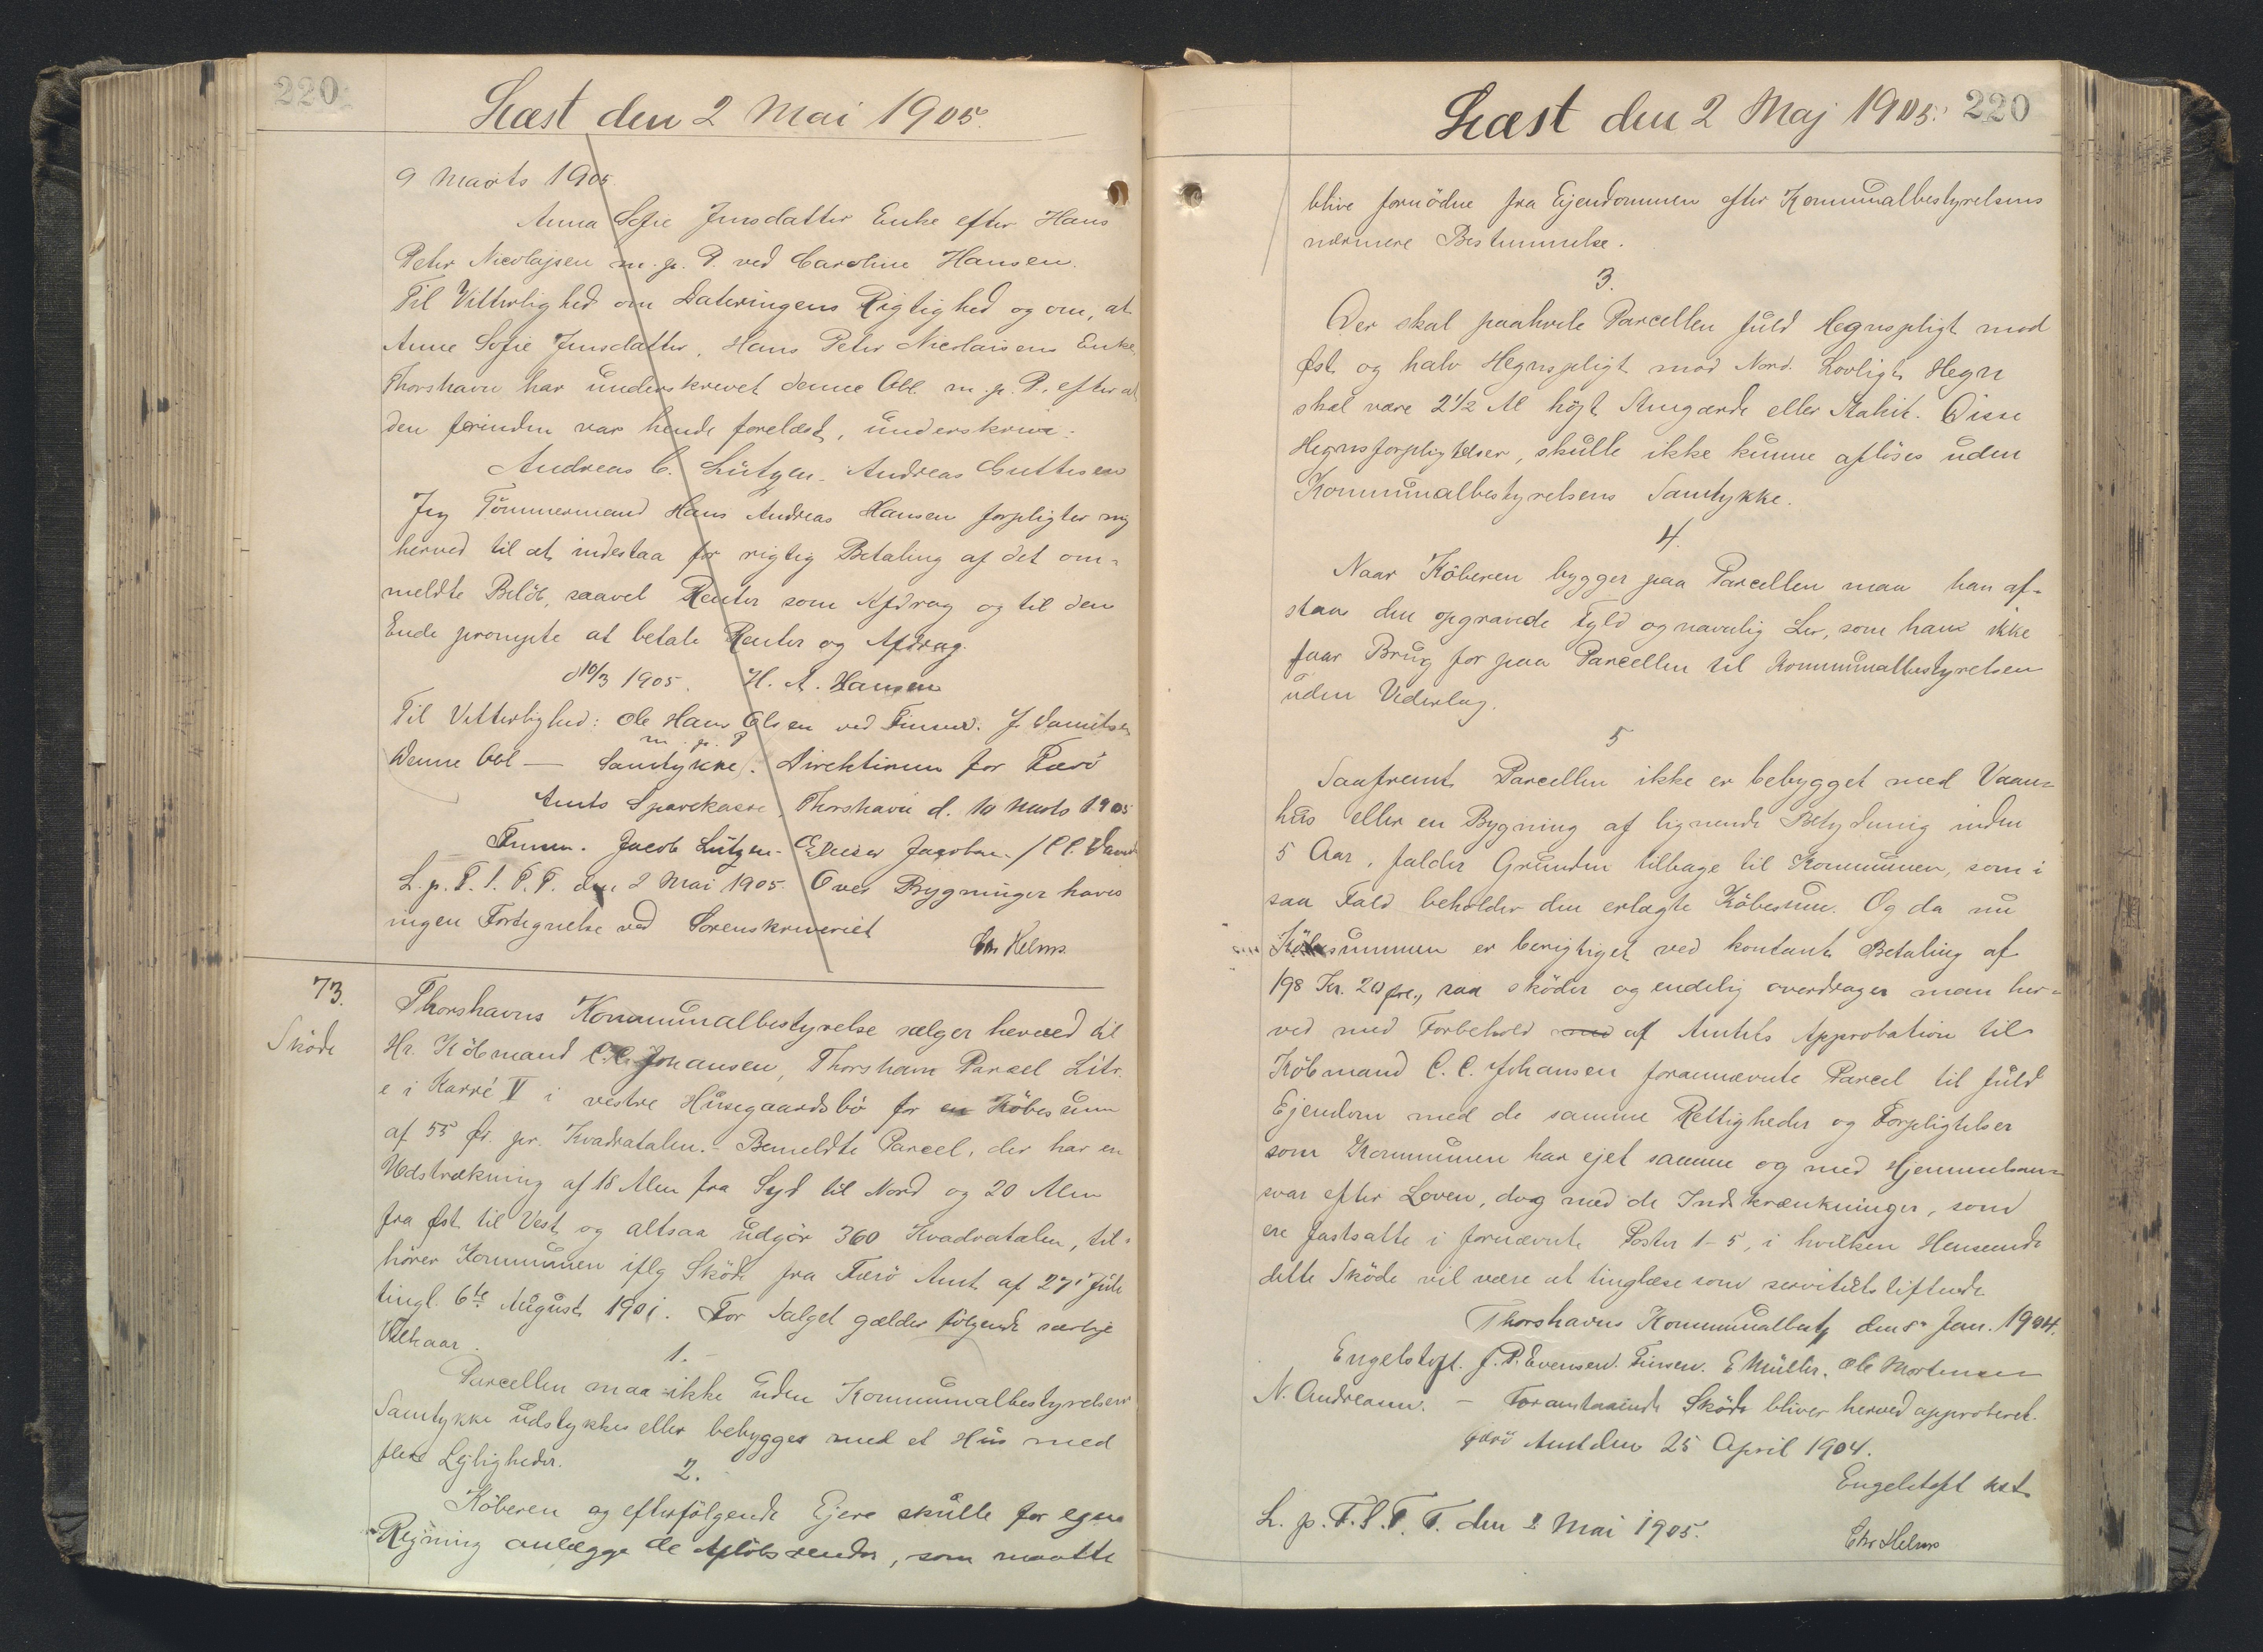 220
Læst den 2 Mai 1905.
9 Marts 1905
Anna Sofie Jensdatter Enke efter Hans
Peter Nicolajsen m. p. P. ved Caroline Hansen.
Til Vitterlighed om Dateringens Rigtighed og om, at
Anne Sofie Jensdatter, Hans Peter Nicolaisens Enke,
Thorshavn har underskrevet denne Obl. m. p. P. efter at
den forinden var hende forelæst, underskrive:
Andreas C. Lützen. Andreas Guttesen
Jeg Tömmermand Hans Andreas Hansen forpligter mig
herved til at indestaa for rigtig Betaling af det om-
meldte Belöb, saavel Renter som Afdrag og til den
Ende prompte at betale Renter og Afdrag.
d 10/3 1905. H. A. Hansen
Til Vitterlighed: Ole Hans Olsen ved Finsen. J.
m. p. P
Denne Obl — Samtykke. Direktionen for Færö
Amts Sparekasse, Thorshavn d. 10 Marts 1905
Finsen. Jacob Lützen. Elieser Jacobsen. /
L. p. F. S. T. T. den 2 Mai 1905. Over Bygninger haves
ingen Fortegnelse ved Sorenskriveriet
Chr Helms.
73.
Sköde
Thorshavns Kommunalbestyrelse sælger herved til
Hr. Köbmand C. C. Johansen, Thorshavn Parcel Litr.
e i Karré V i vestre Husegaardsbö for en Köbesum
af 55 Ør. pr. Kvadratalen. - Bemeldte Parcel, der har en
Udstrækning af 18 Alen fra Syd til Nord og 20 Alen
fra Øst til Vest og altsaa udgör 360 Kvadratalen, til-
hörer Kommunen iflg Sköde fra Færö Amt af 27' Juli
tingl. 6te August 1901. For Salget gælder fölgende særlige
Vilkaar.
1.
Parcellen maa ikke uden Kommunalbestyrelsens
Samtykke udstykkes eller bebygges med et Hus med
flere Lejligheder.
2.
Köberen og efterfölgende Ejere skulle for egen
Regning anlægge de Aflöbsrender, som maatte
Læst den 2 Maj 1905. 220
blive fornödne fra Ejendommen efter Kommunalbestyrelsens
nærmere Bestemmelse.
3.
Der skal paahvile Parcellen fuld Hegnspligt mod
Øst og halv Hegnspligt mod Nord. Lovligt Hegn
skal være 2 1/2 Al höjt Stengærde eller Stakit. Disse
Hegnsforpligtelser, skulle ikke kunne aflöses uden
Kommunalbestyrelsens Samtykke.
4.
Naar Köberen bygger paa Parcellen maa han af-
staa den opgravede Fyld og navnlig Ler, som han ikke
faar Brug for paa Parcellen til Kommunalbestyrelsen
uden Vederlag.
5
Saafremt Parcellen ikke er bebygget med Vaan-
hus eller en Bygning af lignende Betydning inden
5 Aar, falder Grunden tilbage til Kommunen, som i
saa Fald beholder den erlagte Köbesum. Og da nu
Köbesummen er berigtiget ved kontant Betaling af
198 Kr. 20 Øre., saa sköder og endelig overdrager man her-
ved med Forbehold med af Amtets Approbation til
Köbmand C. C. Johansen forannævnte Parcel til fuld
Ejendom med de samme Rettigheder og Forpligtelser
som Kommunen har ejet samme og med Hjemmelsan-
svar efter Loven, dog med de Indskrænkninger, som
ere fastsatte i fornævnte Poster 1-5, i hvilken Henseende
dette Sköde vil være at tinglæse som servitutstiftende.
Thorshavns Kommunalbest, den 8' Jan. 1904.
Engelstoft. J. P. Evensen. Finsen. E Müller. Ole Mortensen
N. Andreasen. - Foranstaaende Sköde bliver herved approberet.
Færö Amt den 25 April 1904.
Engelstoft kst.
L. p. F. S. T. T. den 2 Mai 1905.
Chr Helms